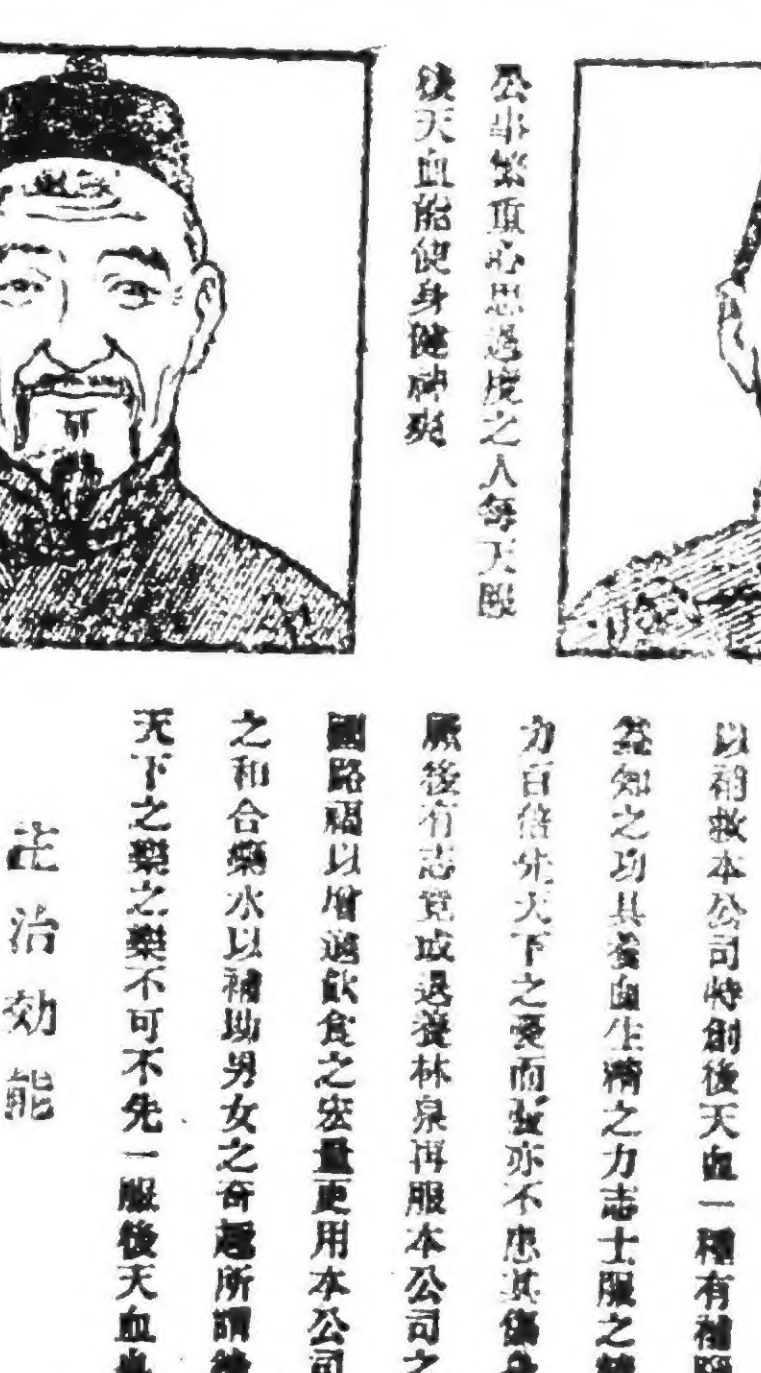 公事繁重心思過度之人每天服
後天血能使身健神爽
以補救本公司特創後天血一種有補腦
益知之功具養血生精之力志士服之精
力百倍先天下之憂而憂亦不患其傷身
厥後有志竟成退養林泉再服本公司之
路福以增進飲食之宏量更用本公司
之和合樂水以補助男女之奇趣所謂後
天下之樂之樂不可不先一服後天血也
主治効能